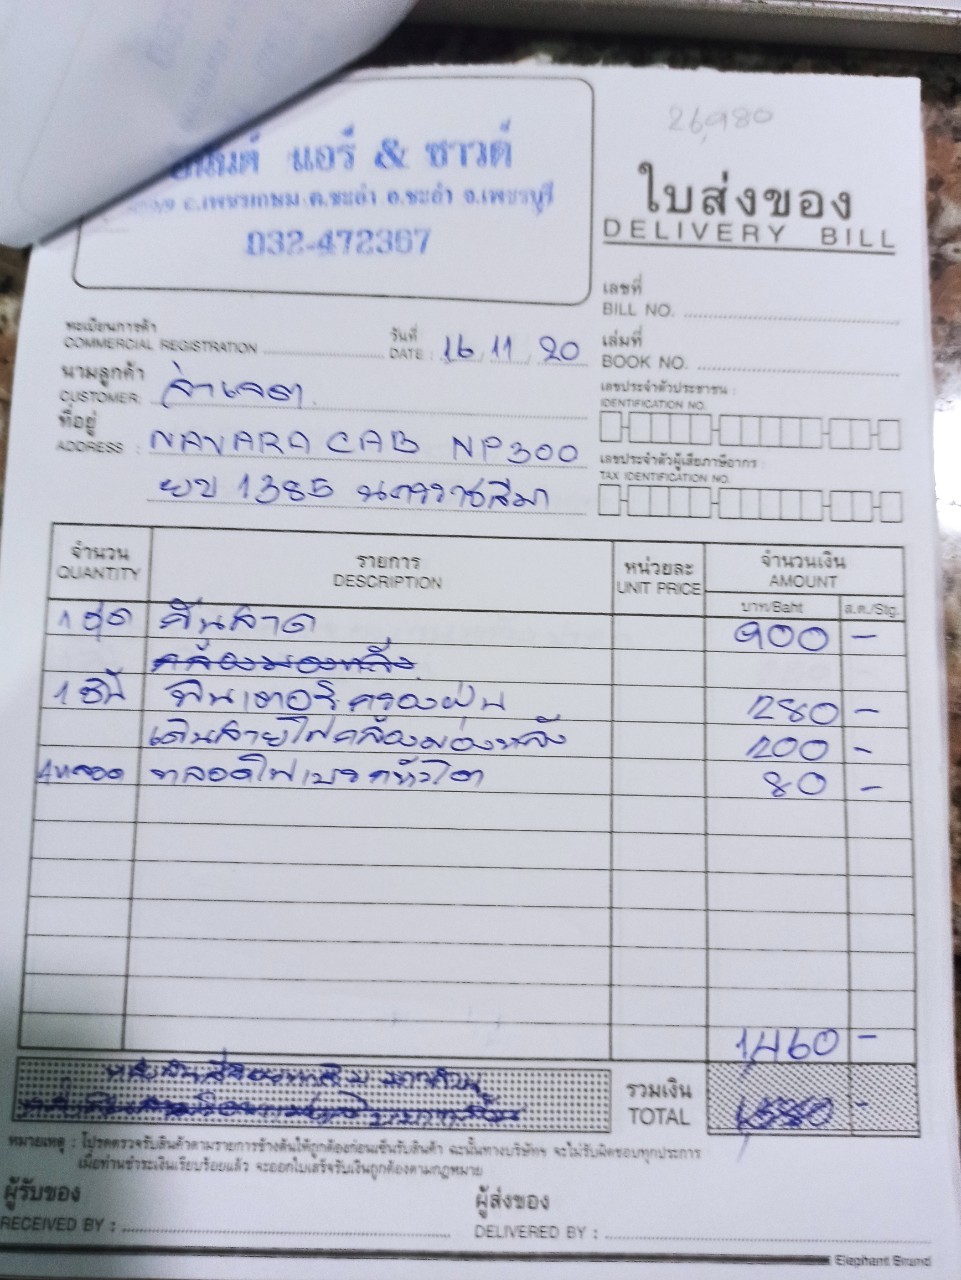 26,980
แอร์ & ซาวด์
ถ.เพชรเกษม ต.ชะอำ อ.ชะอำ จ.เพชรบุรี
032-472367
ใบส่งของ
DELIVERY BILL
เลขที่
BILL NO.
ทะเบียนการค้า
COMMERCIAL REGISTRATION
วันที่
DATE : 16 / 11 / 20
เล่มที่
BOOK NO.
นามลูกค้า
CUSTOMER:
เลขประจำตัวประชาชน :
IDENTIFICATION NO.
ที่อยู่
ADDRESS : NAVARA CAB NP300
1385 นครราชสีมา
เลขประจำตัวผู้เสียภาษีอากร :
TAX IDENTIFICATION NO.
จำนวน รายการ หน่วยละ จำนวนเงิน
QUANTITY DESCRIPTION UNIT PRICE AMOUNT
บาท/Baht ส.ต./Stg.
1 ชุด คันลาด 900 -
กล้องมองหลัง
1 ชิ้น ฟิลเตอร์กรองฝุ่น 280 -
เดินสายไฟกล้องมองหลัง 200 -
1 หลอด หลอดไฟเบรค 80 -
1,460 -
รวมเงิน
TOTAL
หมายเหตุ : โปรดตรวจรับสินค้าตามรายการข้างต้นให้ถูกต้องก่อนเซ็นรับสินค้า ฉะนั้นทางบริษัทฯ จะไม่รับผิดชอบทุกประการ
เมื่อท่านชำระเงินเรียบร้อยแล้ว จะออกใบเสร็จรับเงินถูกต้องตามกฎหมาย
ผู้รับของ ผู้ส่งของ
RECEIVED BY : DELIVERED BY :
Elephant Brand